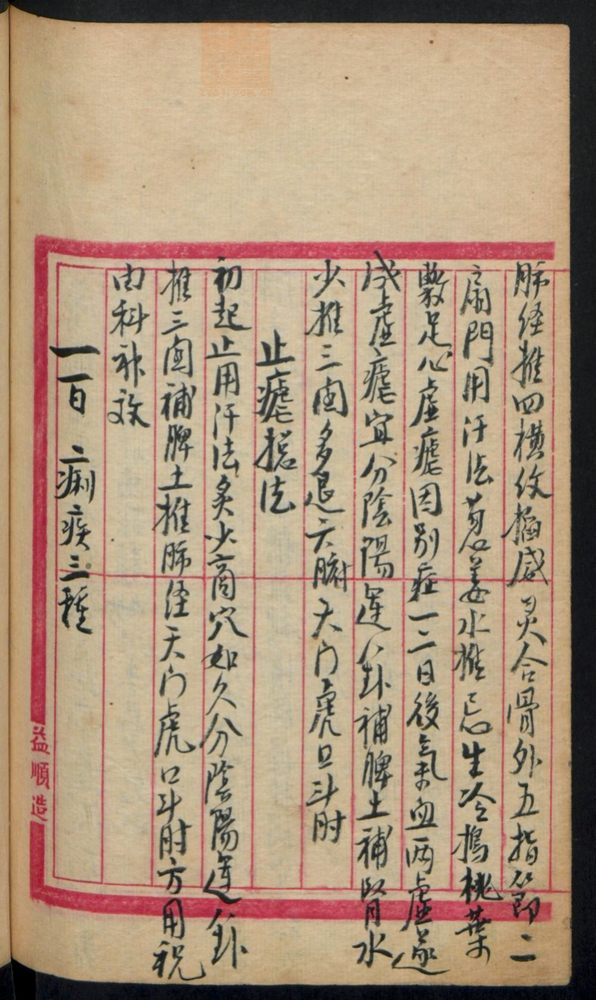 肺经推四横纹掐威灵合骨外五指節二
扇門用汗法葱姜水推忌生冷搗桃葉
敷足心虚瘧因别症一二日後氣血两虚遂
成虚瘧宜分陰陽運八卦補脾土補腎水
少推三関多退六腑天门虎口斗肘
止瘧掐法
初起止用汗法灸少商穴如久分陰陽運八卦
推三関補脾土推肺经天门虎口斗肘方用祝
由科
一百 痢疾三種
益順造